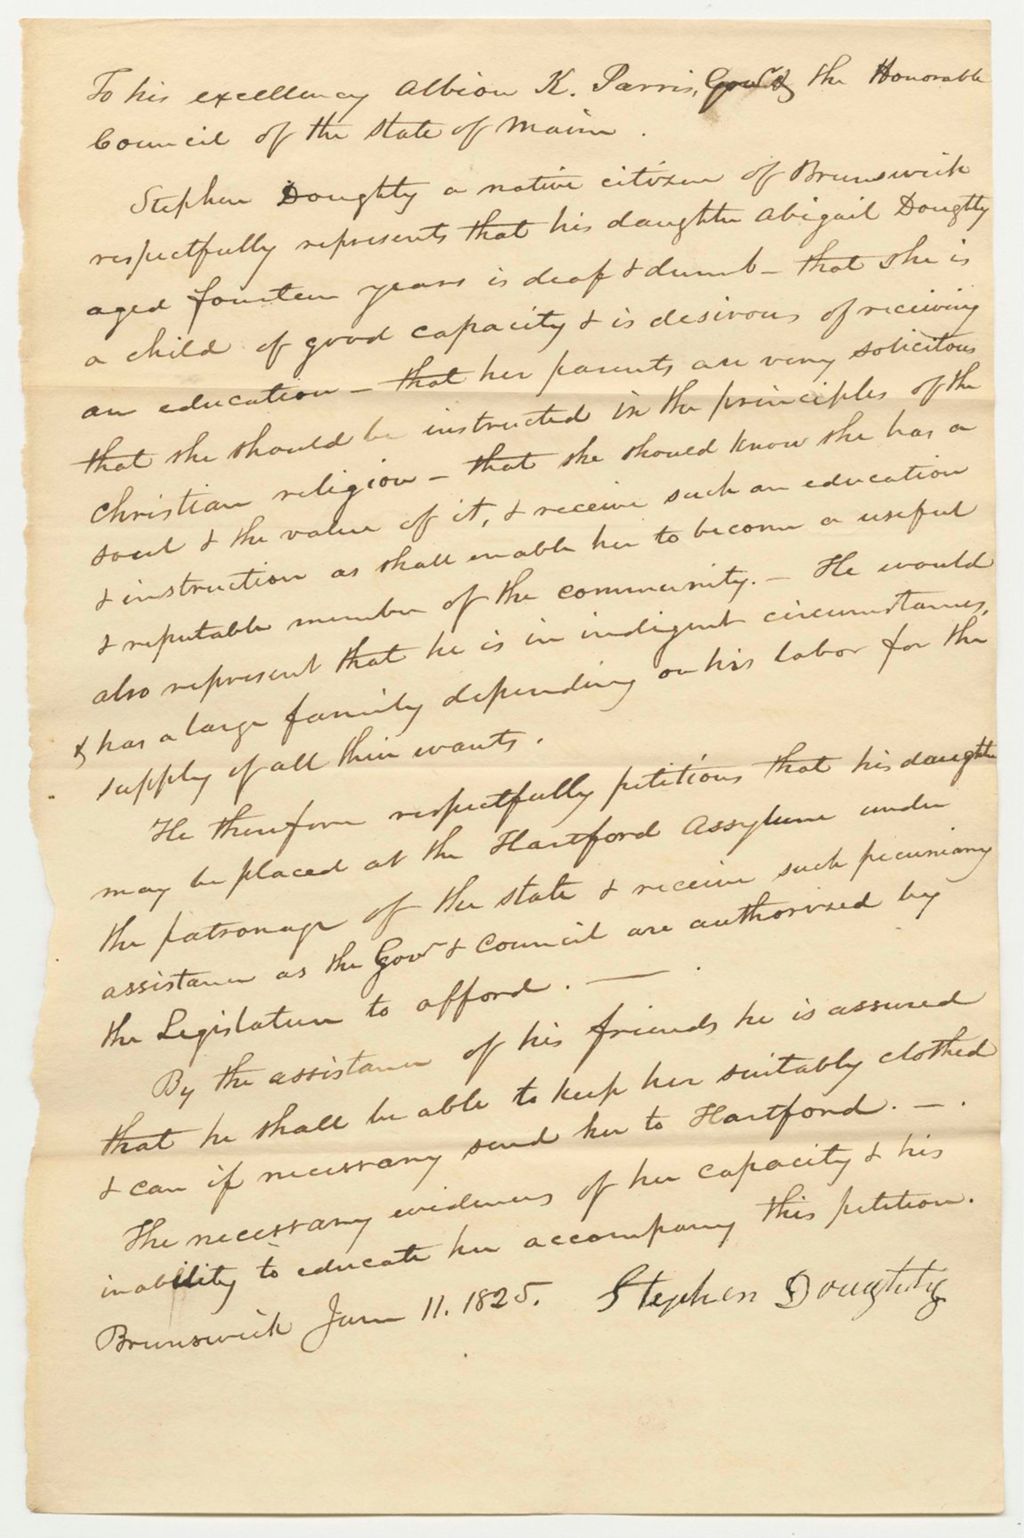 To his excellency Albion K. Parris, Govr & the Honorable
Council of the State of Maine.
Stephen Doughty a native citizen of Brunswick
respectfully represents that his daughter Abigail Doughty
aged fourteen years is deaf & dumb – that she is
a child of good capacity & is desirous of receiving
an education – that her parents are very solicitous
that she should be instructed in the principles of the
Christian religion – that she should know she has a
soul & the value of it, & receive such an education
& instruction as shall enable her to become a useful
& reputable member of the community. – He would
also represent that he is in indigent circumstances,
& has a large family depending on his labor for the
supply of all their wants.
He therefore respectfully petitions that his daughter
may be placed at the Hartford Assylum under
the patronage of the state & receive such pecuniary
assistance as the Govr & Council are authorized by
the Legislature to afford. —
By the assistance of his friends he is assured
that he shall be able to keep her suitably clothed
& can if necessary send her to Hartford. – .
The necessary evidences of her capacity & his
inability to educate her accompany this petition.
Brunswick June 11. 1825. Stephen Doughty